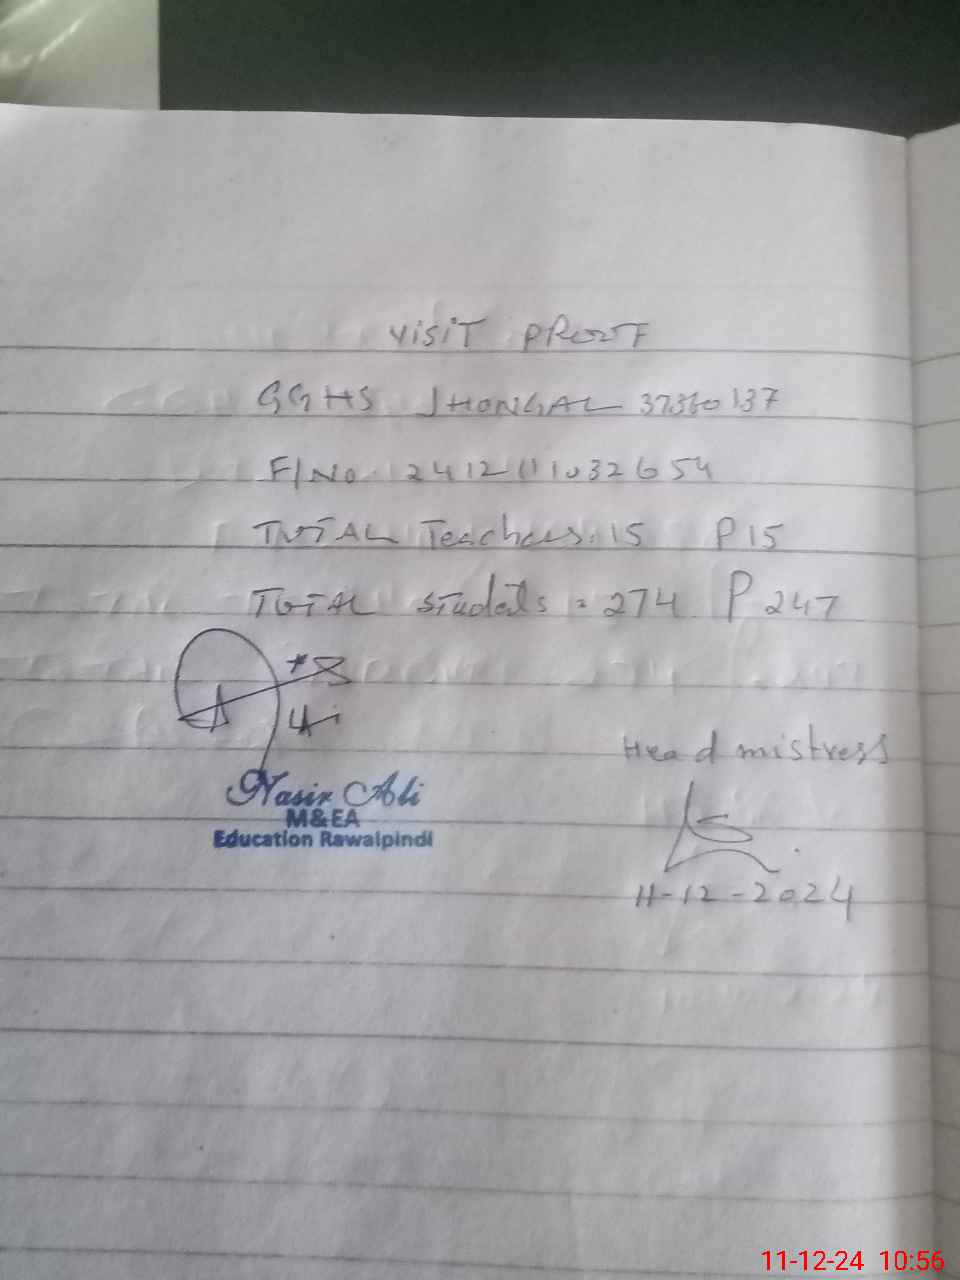 VISIT PROOF
GGHS JHONGAL 37360137
F/No. 2412111032654
TOTAL Teachers. 15 P 15
TOTAL students = 274 P 247
Nasir Ali
M&EA
Education Rawalpindi
Head mistress
11-12-2024
11-12-24 10:56